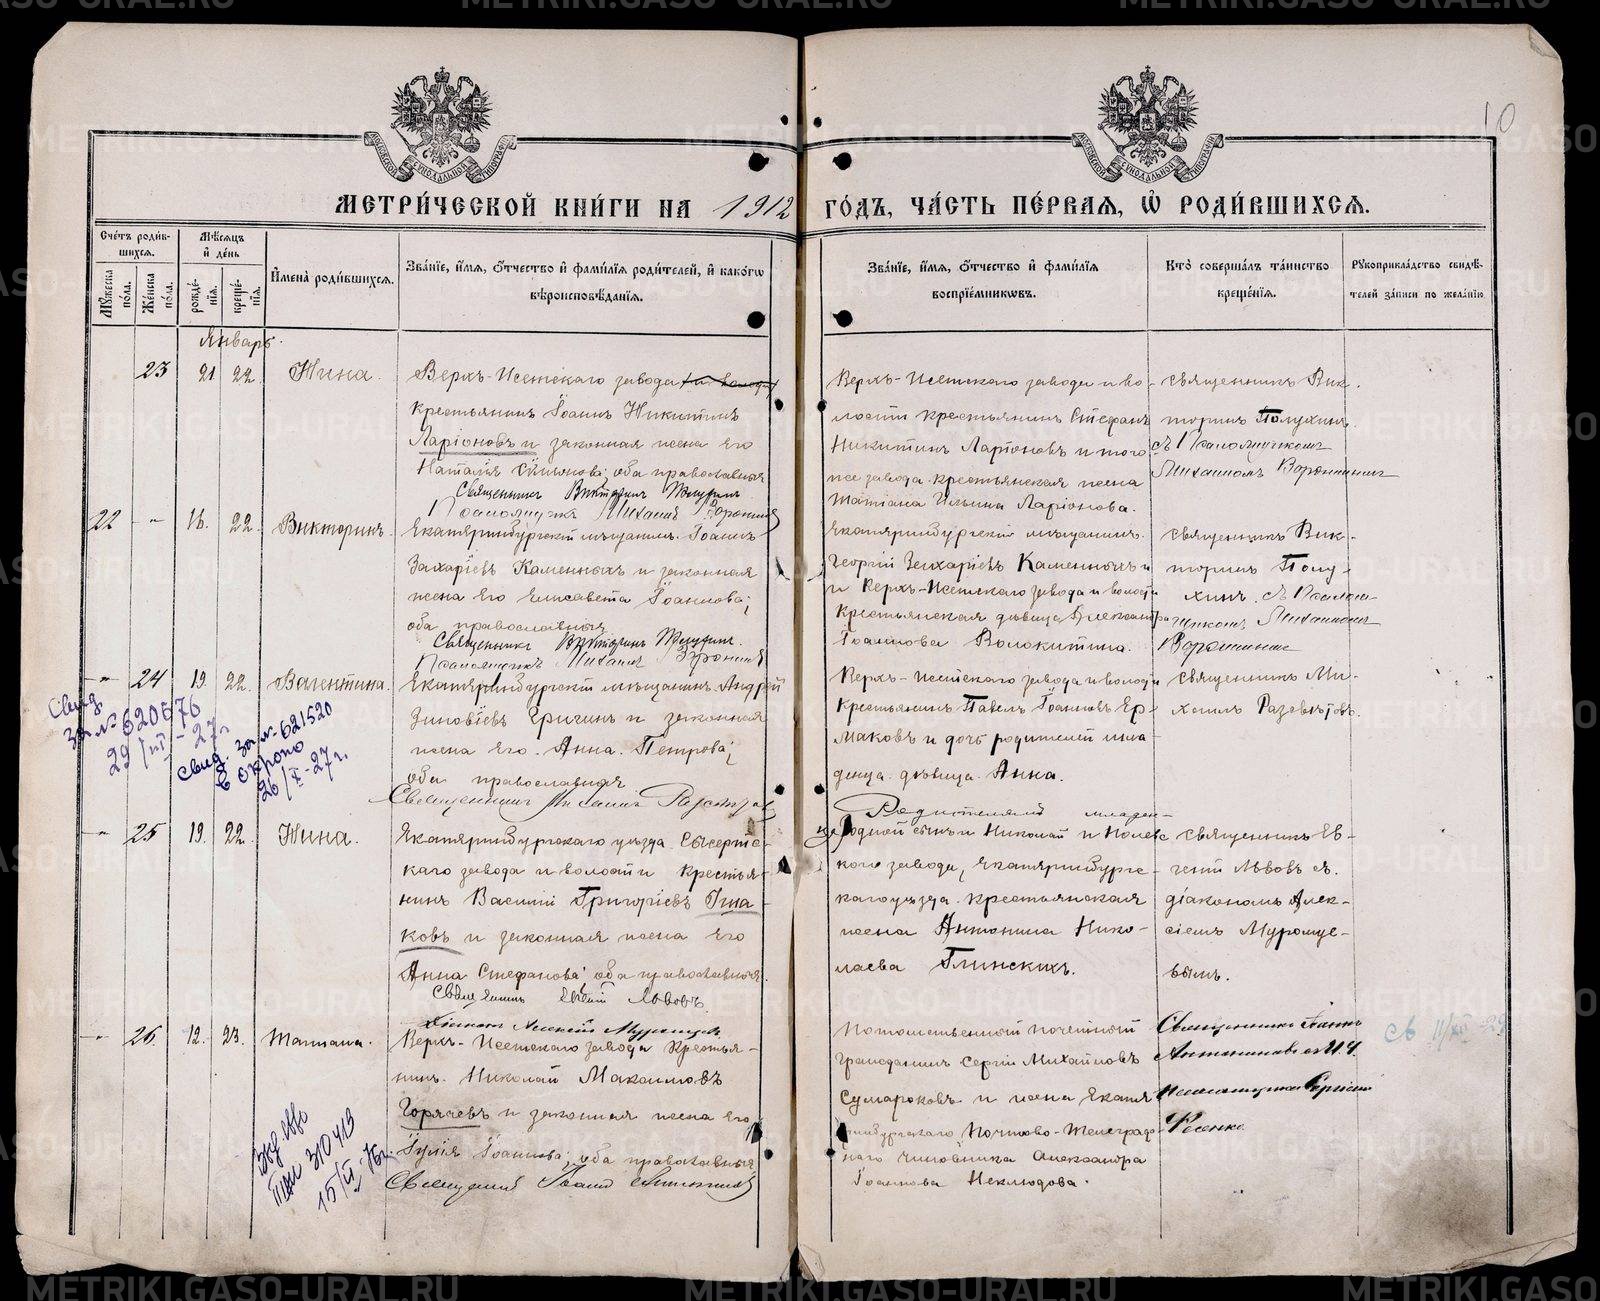 METRIKI.GASO-URAL.RU
10
МОСКОВСКОЙ СѴНОДАЛЬНОЙ ТИПОГРАФІИ
МОСКОВСКОЙ СѴНОДАЛЬНОЙ ТИПОГРАФІИ
МЕТРИ́ЧЕСКОЙ КНИ́ГИ НА 1912 ГО́ДЪ, ЧА́СТЬ ПЕ́РВАЯ, Ѡ҆ РОДИ́ВШИХСЯ.
Сче́тъ роди́вшихся.
Мꙋжеска по́ла.
Же́нска по́ла.
Мѣ́сяцъ и҆ де́нь
рожде́нїѧ.
креще́нїѧ.
И҆мена̀ роди́вшихся.
Зва́нїе, и҆́мя, ѻ҆́тчество и҆ фами́лїя роди́телей, и҆ како́гѡ
вѣроисповѣ́данїя.
Зва́нїе, и҆́мя, ѻ҆́тчество и҆ фами́лїя
воспрїе́мникѡвъ.
Кто̀ соверша́лъ та́инство
креще́нїя.
Рꙋкоприкла́дство свидѣ́-
телей за́писи по жела́нїю
Январь.
23 21 22 Нина.
Верхъ-Исетскаго завода
крестьянинъ Іоаннъ Никитинъ
Ларіоновъ и законная жена его
Наталія оба православные
Священникъ Викторинъ
Псаломщикъ Михаилъ
Верхъ-Исетскаго завода и во-
лости крестьянинъ Стефанъ
Никитинъ Ларіоновъ и того
же завода крестьянская жена
Татіана Ильина Ларіонова.
Священникъ Вик-
торинъ Полухинъ
съ Псаломщикомъ
Михаиломъ
22 -"- 16. 22. Викторинъ.
Екатеринбургскій мѣщанинъ Іоаннъ
Захаріевъ Каменныхъ и законная
жена его Елисавета Іоаннова;
оба православные
Священникъ Викторинъ
Псаломщикъ Михаилъ
Екатеринбургскій мѣщанинъ
Георгій Захаріевъ Каменныхъ
и Верхъ-Исетскаго завода и волости
крестьянская дѣвица Александра
Іоаннова Волокитина.
Священникъ Вик-
торинъ Полу-
хинъ съ Псалом-
щикомъ Михаиломъ
-"- 24 19. 22. Валентина.
Екатеринбургскій мѣщанинъ Андрей
Зиновіевъ и законная
жена его Анна Петрова;
оба православные
Священникъ Михаилъ
Верхъ-Исетскаго завода и волости
крестьянинъ Павелъ Іоанновъ Ер-
маковъ и дочь родителей мла-
денца дѣвица Анна.
Священникъ Ми-
хаилъ
Свид.
за № 620676
29/III-27г
Свид. за № 621520
26/X-27г.
-"- 25 19. 22. Нина.
Екатеринбургскаго уѣзда Сысертс-
каго завода и волости крестья-
нинъ Василій Григоріевъ
ковъ и законная жена его
Анна Стефанова; оба православные.
Священникъ Евгеній Львовъ
Діаконъ Алексій
Родителями младен-
ца
родной сынъ Николай и Полевс-
кого завода, Екатеринбургс-
каго уѣзда крестьянская
жена Антонина Нико-
лаева Глинскихъ.
Священникъ Ев-
геній Львовъ съ
діакономъ Алек-
сіемъ Муромце-
вымъ.
-"- 26. 12. 23. Татіана.
Верхъ-Исетскаго завода крестья-
нинъ Николай Максимовъ
Горячевъ и законная жена его
Іулія Іоаннова; оба православные
Священникъ Іоаннъ
Потомственный почетный
гражданинъ Сергій Михайловъ
Сумароковъ и жена Екате-
ринбургскаго Почтово-Телеграф-
наго чиновника Александра
Іоаннова Неклюдова.
Священникъ Іоаннъ
Псаломщикъ Сергій
Фесенко
310413
15/II-76г.
св 11/XII-29